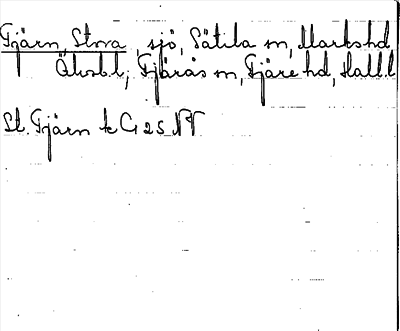 Tjärn, Stora, sjö, Sätila sn, Marks hd
Älvsb.l, Fjärås sn, Fjäre hd, Hall.l
St. Tjärn k G 25 NV